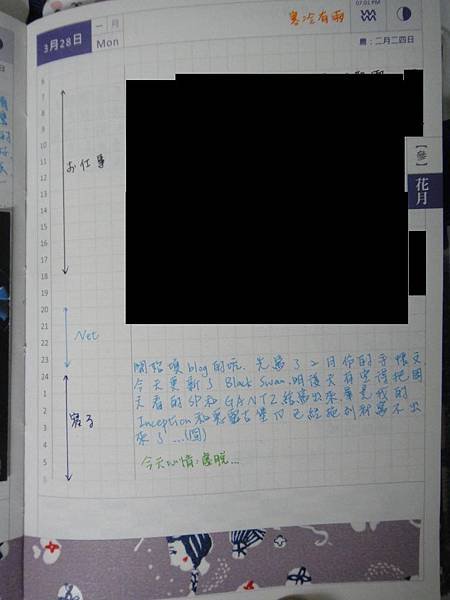 3月28日
一 月
Mon
寒冷有雨
07:01 PM
農：二月二四日
【參】
花月
6
7
8
9
10
11
12
13
14
15
16
17
18
19
20
21
22
23
24
1
2
3
4
5
お仕事
Net
寝る
開始填blog的坑. 先寫了2月份的手帳文,
今天更新了Black Swan,明後天有空得把周
天看的SP和GANTZ給寫出來,畢竟我的
Inception和惡靈古堡IV已經拖到就寫不出
來了...(囧)
今天心情:虛脫...